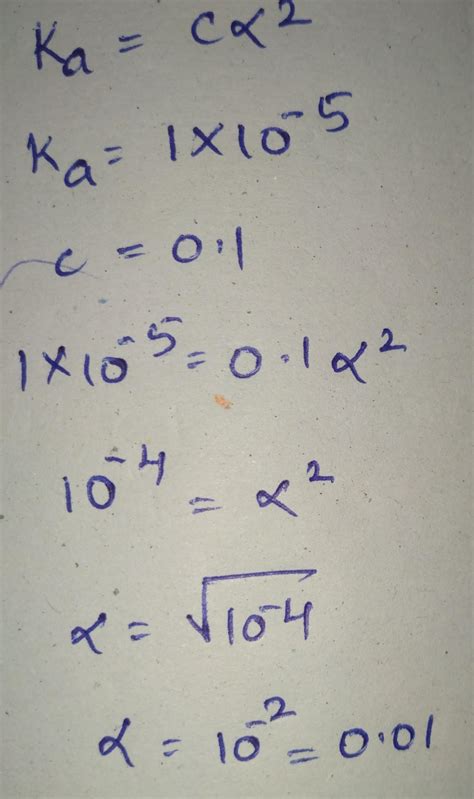 Ka = Cα²
Ka = 1×10⁻⁵
c = 0.1
1×10⁻⁵ = 0.1α²
10⁻⁴ = α²
α = √10⁻⁴
α = 10⁻² = 0.01